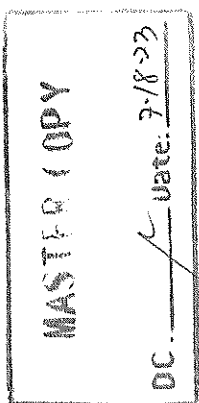 MASTER COPY
DC. Date: 7-18-23